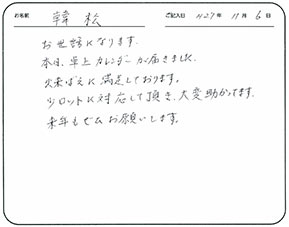 お名前 韓 様 ご記入日 H27年 11月 6日
お世話になります。
本日、卓上カレンダーが届きました。
出来ばえに満足しております。
少ロットに対応して頂き、大変助かってます。
来年もぜひお願いします。